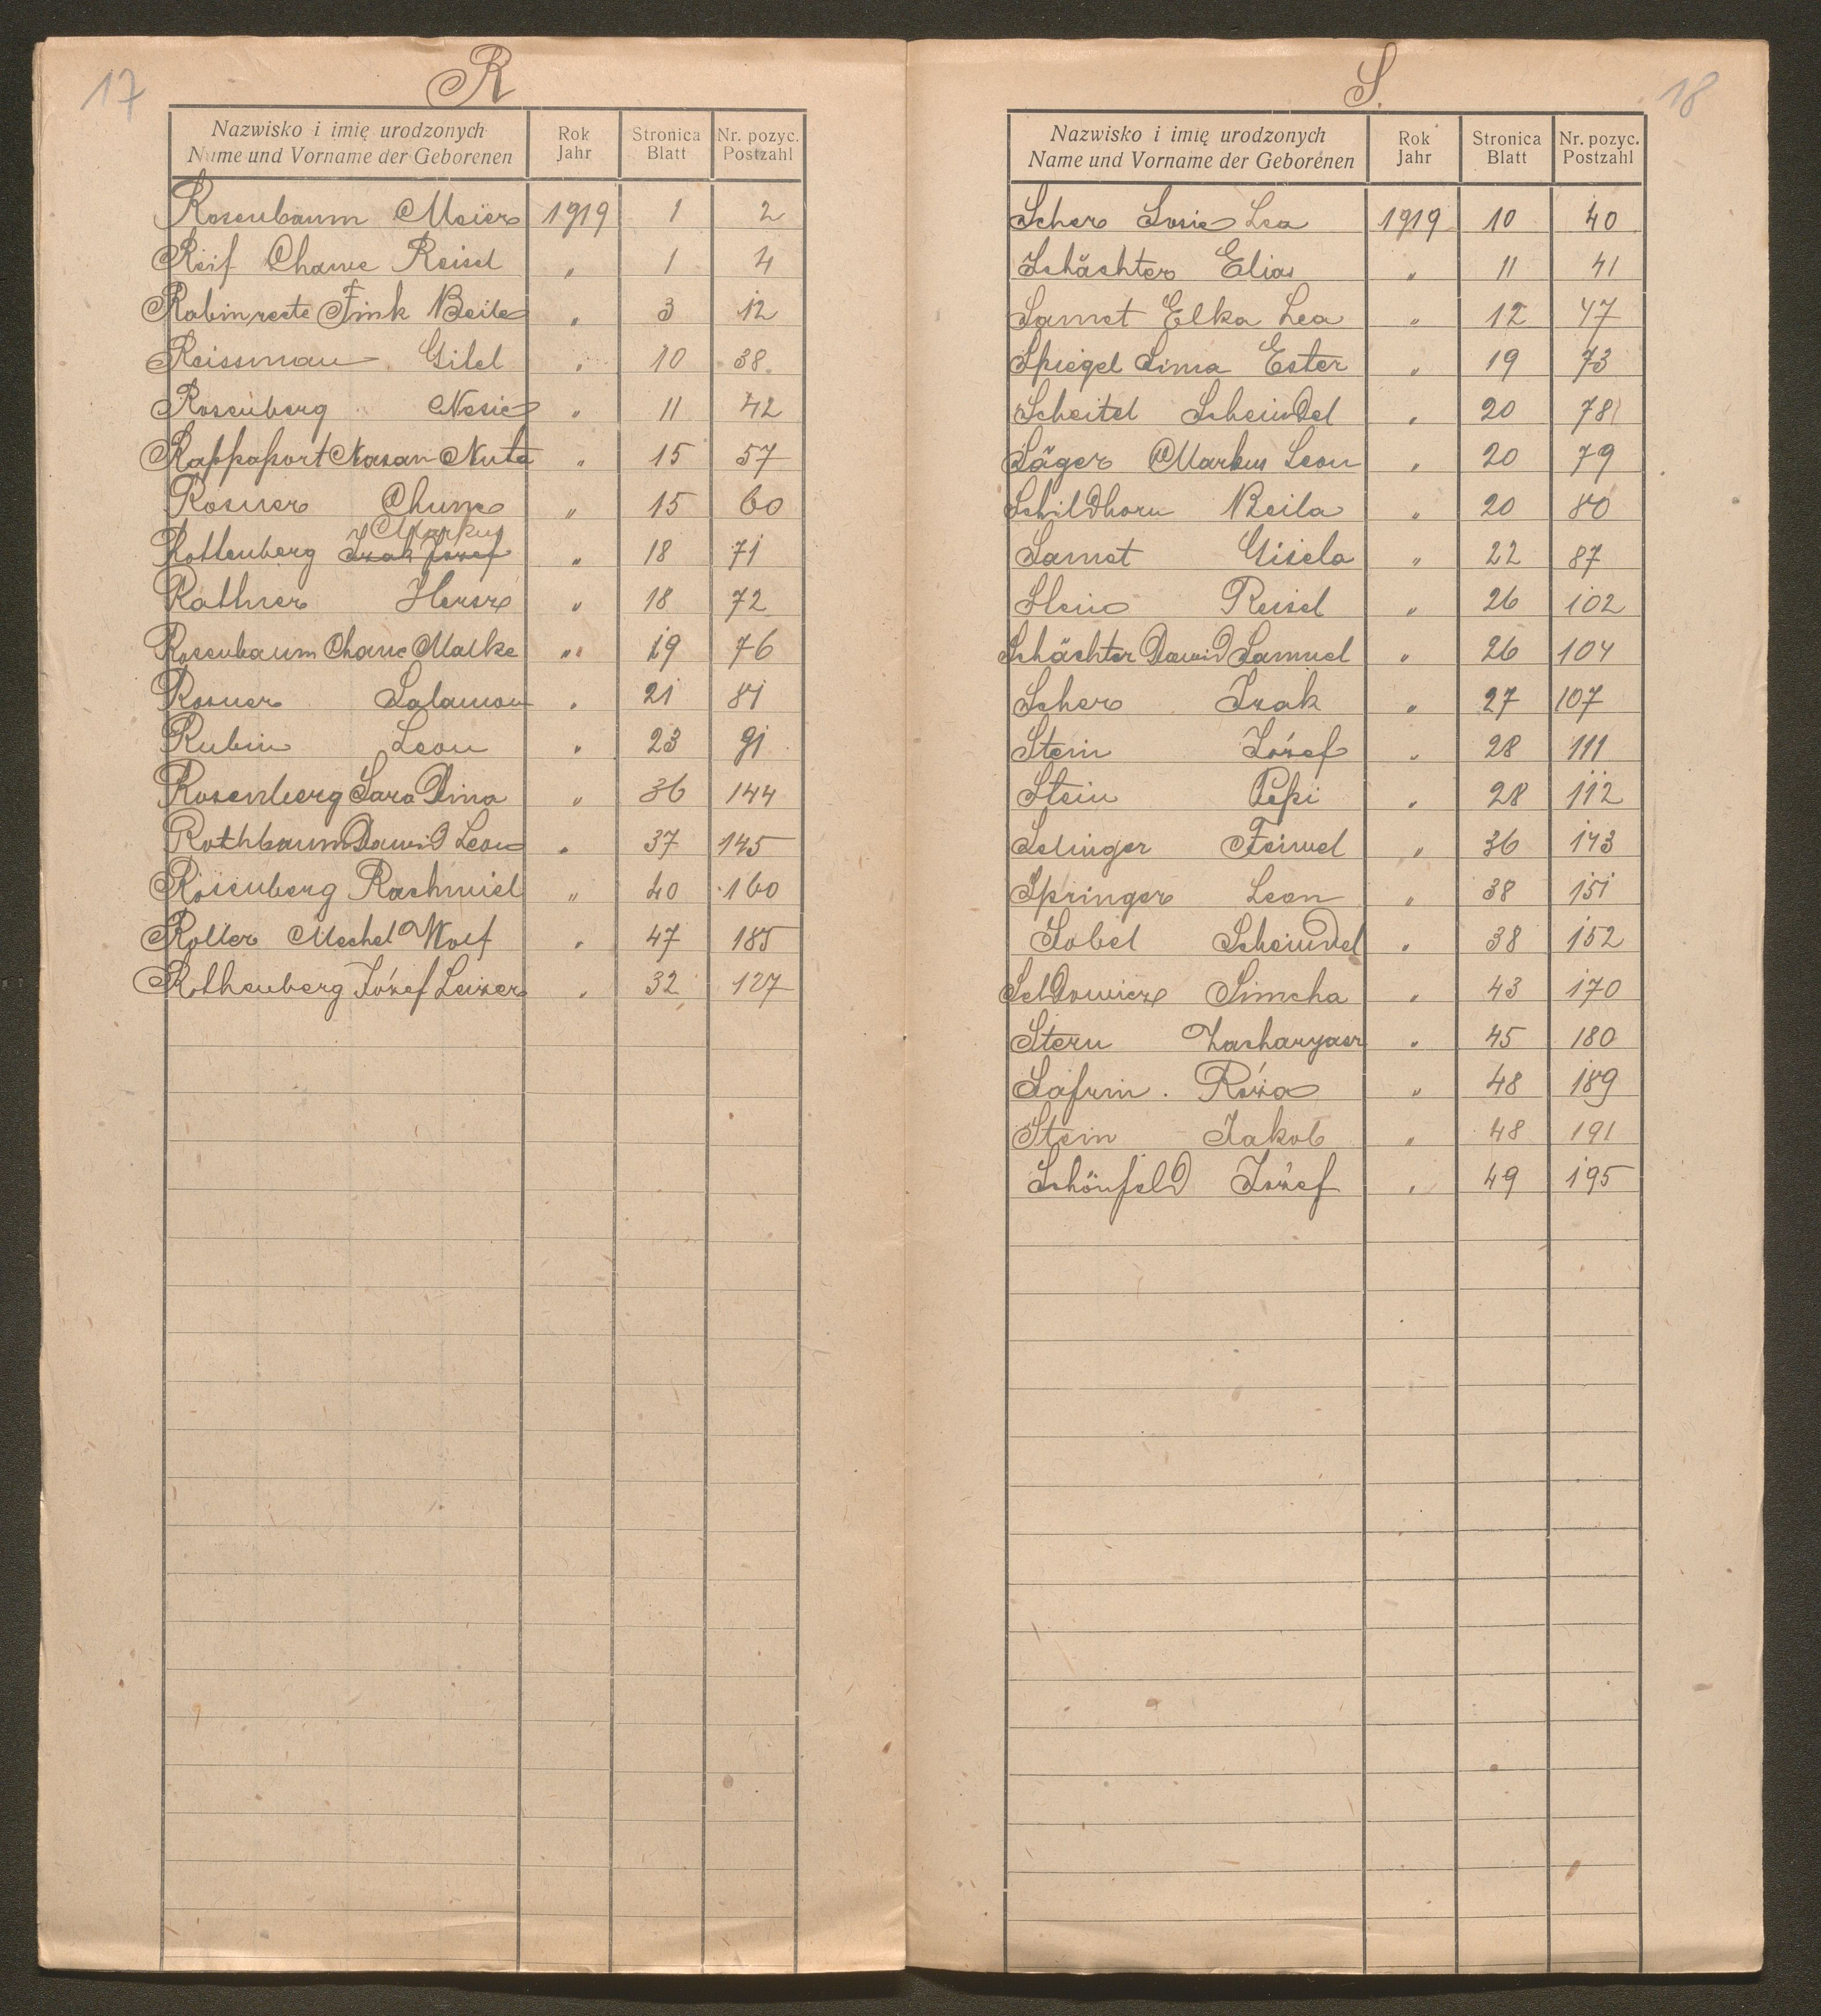 17
R
Nazwisko i imię urodzonych Rok Stronica Nr. pozyc.
Name und Vorname der Geborenen Jahr Blatt Postzahl
Rosenbaum Meier 1919 1 2
Reif Chawe Reisel " 1 4
Rabin recte Fink Beile " 3 12
Reissman Gitel " 10 38
Rosenberg Nesie " 11 42
Rappaport Nasan Nuta " 15 57
Rosner Chune " 15 60
Markus
Rottenberg Izak Josef " 18 71
Rathner Hersz " 18 72
Rosenbaum Chane Malke " 19 76
Rosner Salamon " 21 81
Rubin Leon " 23 91
Rosenberg Sara Dina " 36 144
Rothbaum Dawid Leon " 37 145
Rosenberg Rachmiel " 40 160
Roller Mechel Wolf " 47 185
Rothenberg Józef Leizer " 32 127
18
S.
Nazwisko i imię urodzonych Rok Stronica Nr. pozyc.
Name und Vorname der Geborenen Jahr Blatt Postzahl
Scher Sosie Lea 1919 10 40
Schächter Elias " 11 41
Samet Elka Lea " 12 47
Spiegel Sima Ester " 19 73
Scheitel Scheindel " 20 78
Säger Markus Leon " 20 79
Schildhorn Beila " 20 80
Samet Gisela " 22 87
Stein Reisel " 26 102
Schächter Dawid Samuel " 26 104
Scher Izak " 27 107
Stein Józef " 28 111
Stein Pepi " 28 112
Selinger Feiwel " 36 143
Springer Leon " 38 151
Sobel Scheindel " 38 152
Seldowicz Simcha " 43 170
Stern Zacharyasz " 45 180
Safrin Róża " 48 189
Stein Jakob " 48 191
Schönfeld Józef " 49 195